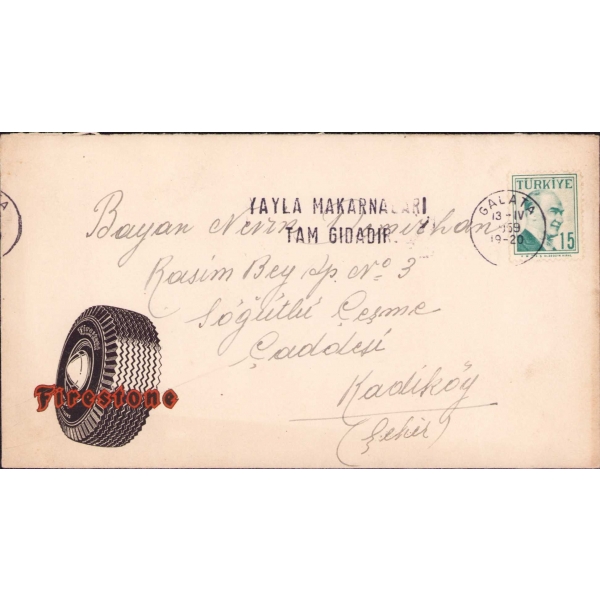 TÜRKİYE
15
GALATA
13-IV
1959
19-20
YAYLA MAKARNALARI
TAM GIDADIR.
Bayan
Kasim Bey Ap Nº 3
Söğütlü Çeşme
Çaddesi
Kadıköy
(Şehir)
Firestone
Firestone
A